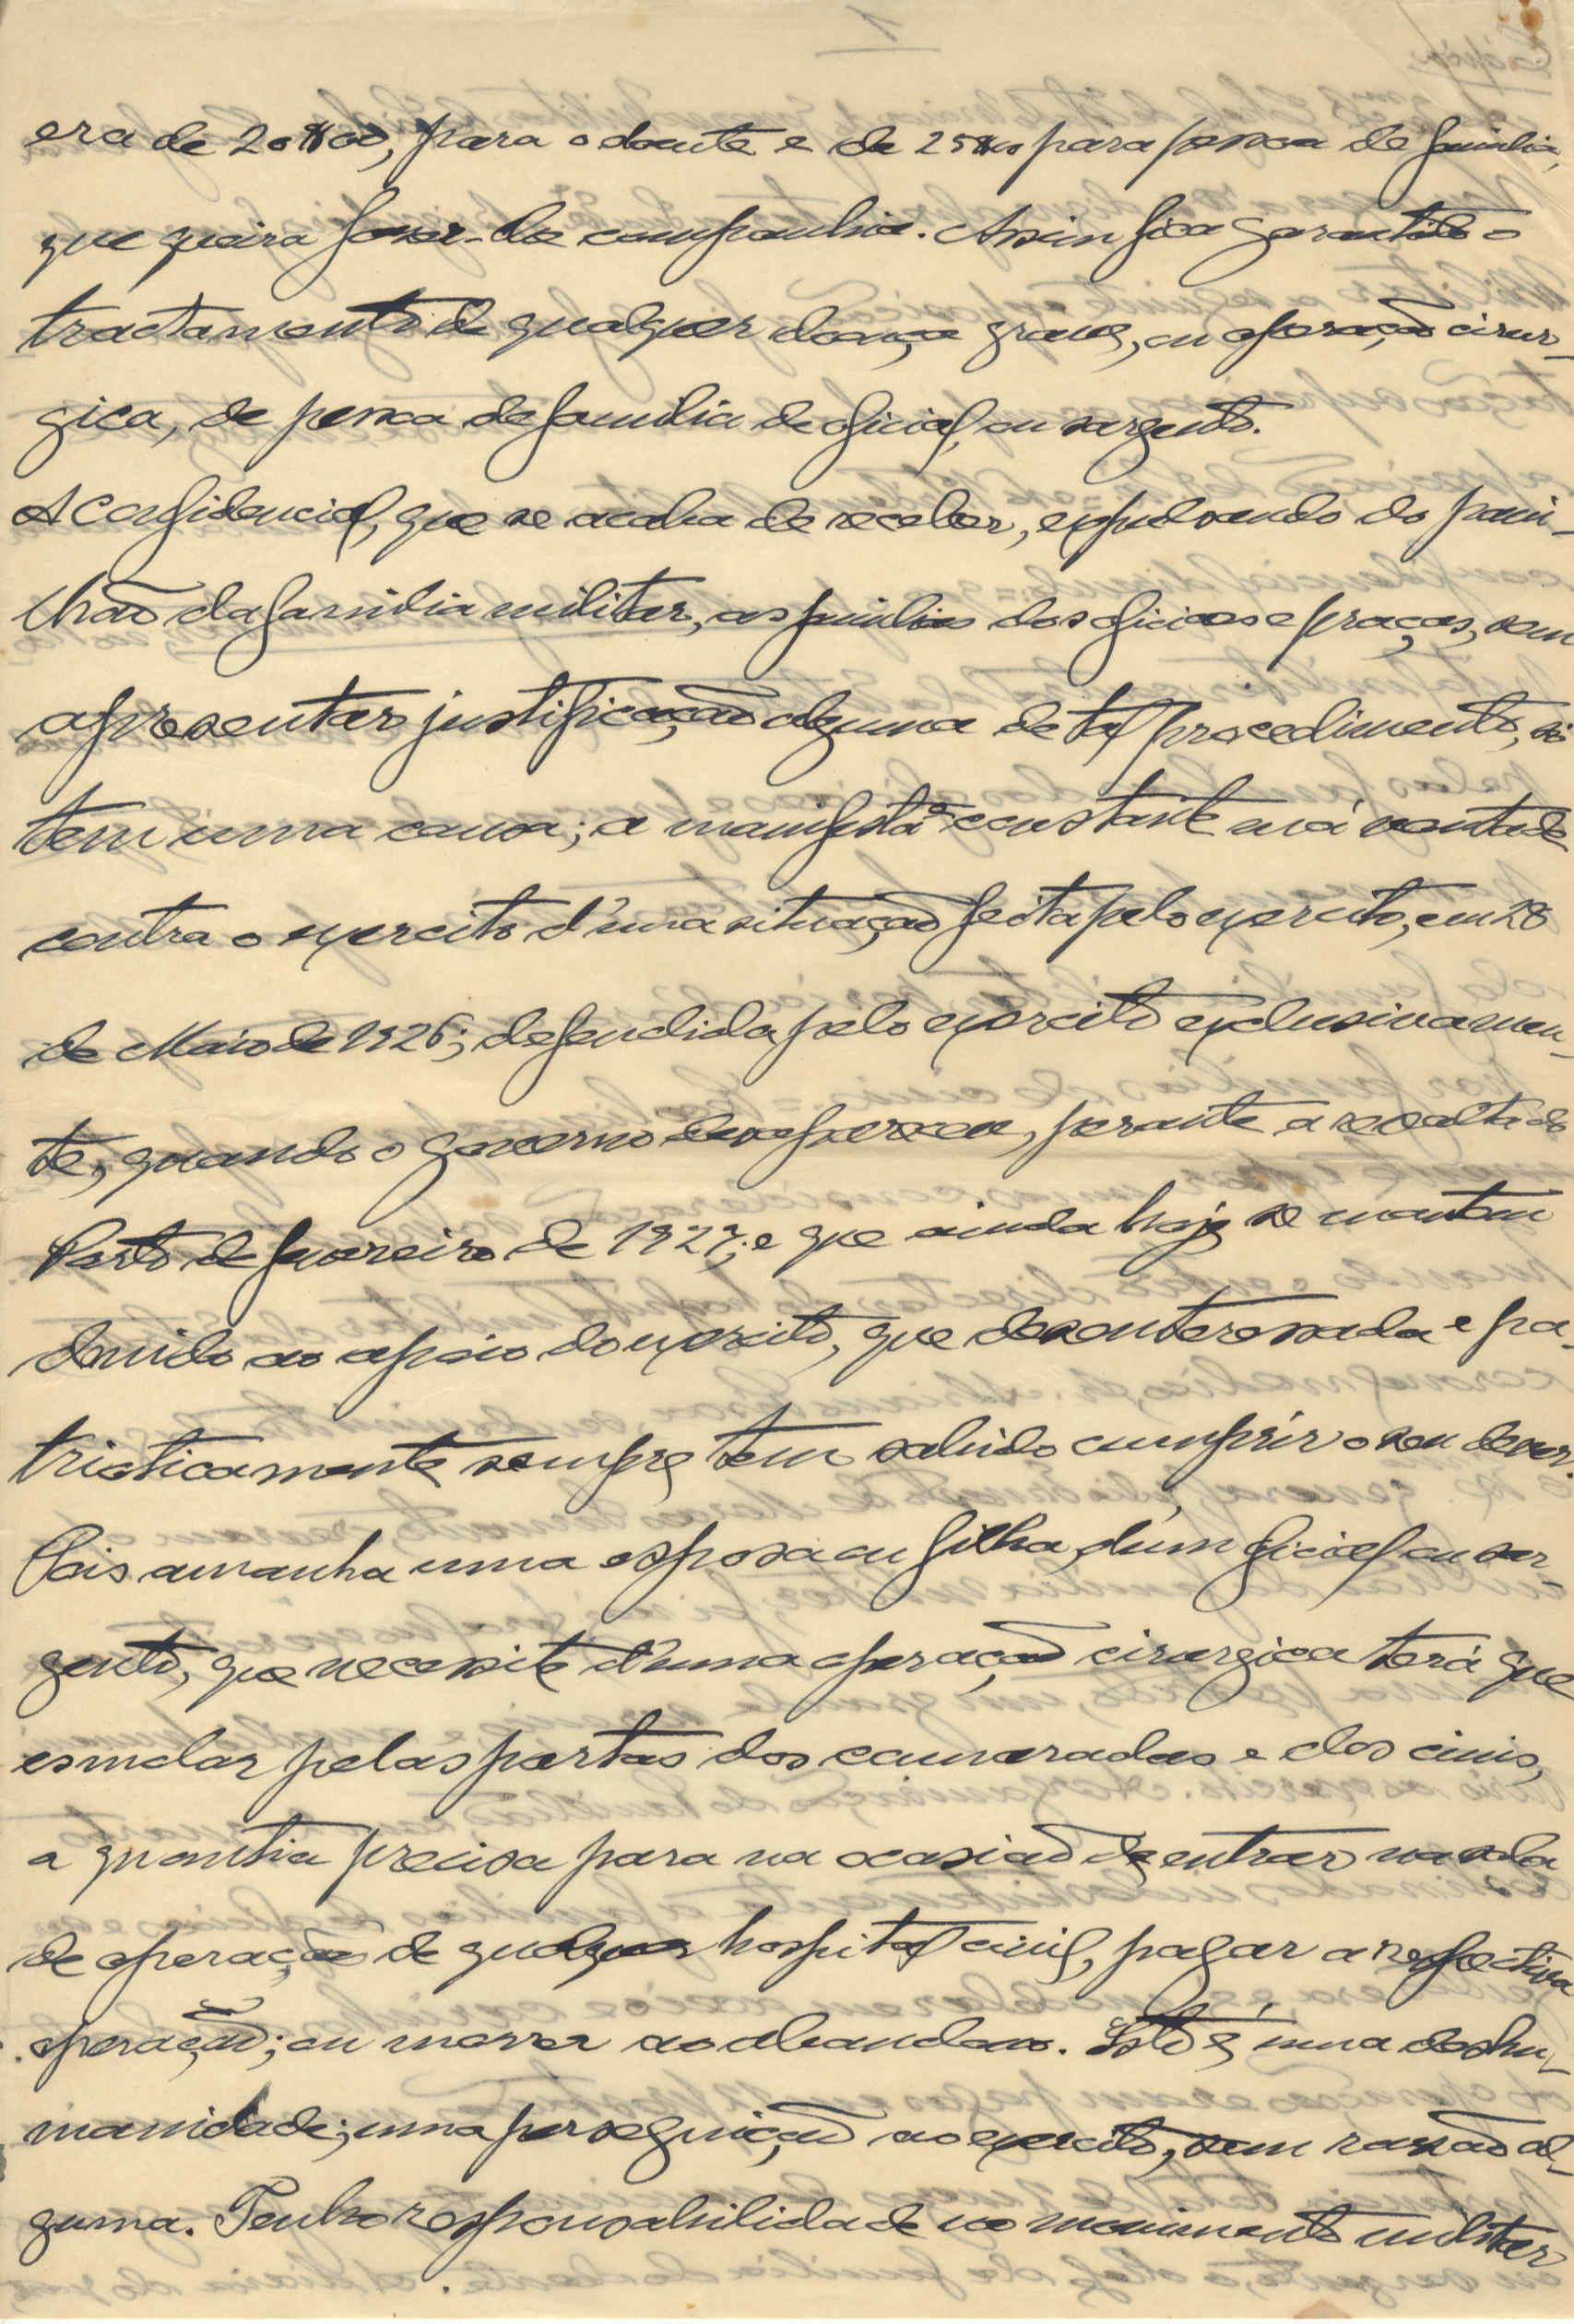 1
era de 20$00, para o doente e de 25$00 para pessoa de familia,
que queira fazer-lhe companhia. Assim fica garantido o
tractamento de qualquer doença grave, ou operação cirur-
gica, de pessoa de familia de oficial, ou sargento.
A Confidencial, que se acaba de receber, expulsando do pavi-
lhão da familia militar, as familias dos oficiaes e praças, sem
apresentar justificação alguma de tal procedimento, só
tem uma causa; a manifesta e constante má vontade
contra o exercito d'uma situação feita pelo exercito, em 28
de Maio de 1926; defendida pelo exercito exclusivamen-
te, quando o governo desapareceu, perante a revolta do
Porto de fevereiro de 1927; e que ainda hoje se mantem
devido ao apoio do exercito, que desenteressada e pa-
trioticamente sempre tem sabido cumprir o seu dever.
Pois amanha uma esposa ou filha, d'um oficial ou sar-
gento, que necessite d'uma operação cirurgica terá que
esmolar pelas portas dos camaradas e dos civis,
a quantia precisa para na ocasião de entrar na sala
de operação de qualquer hospital civil, pagar a respectiva
operação; ou morrer ao abandono. Isto é, uma deshu-
manidade; uma perseguição ao exercito, sem rasão al-
guma. Tenho responsabilidade no movimento militar